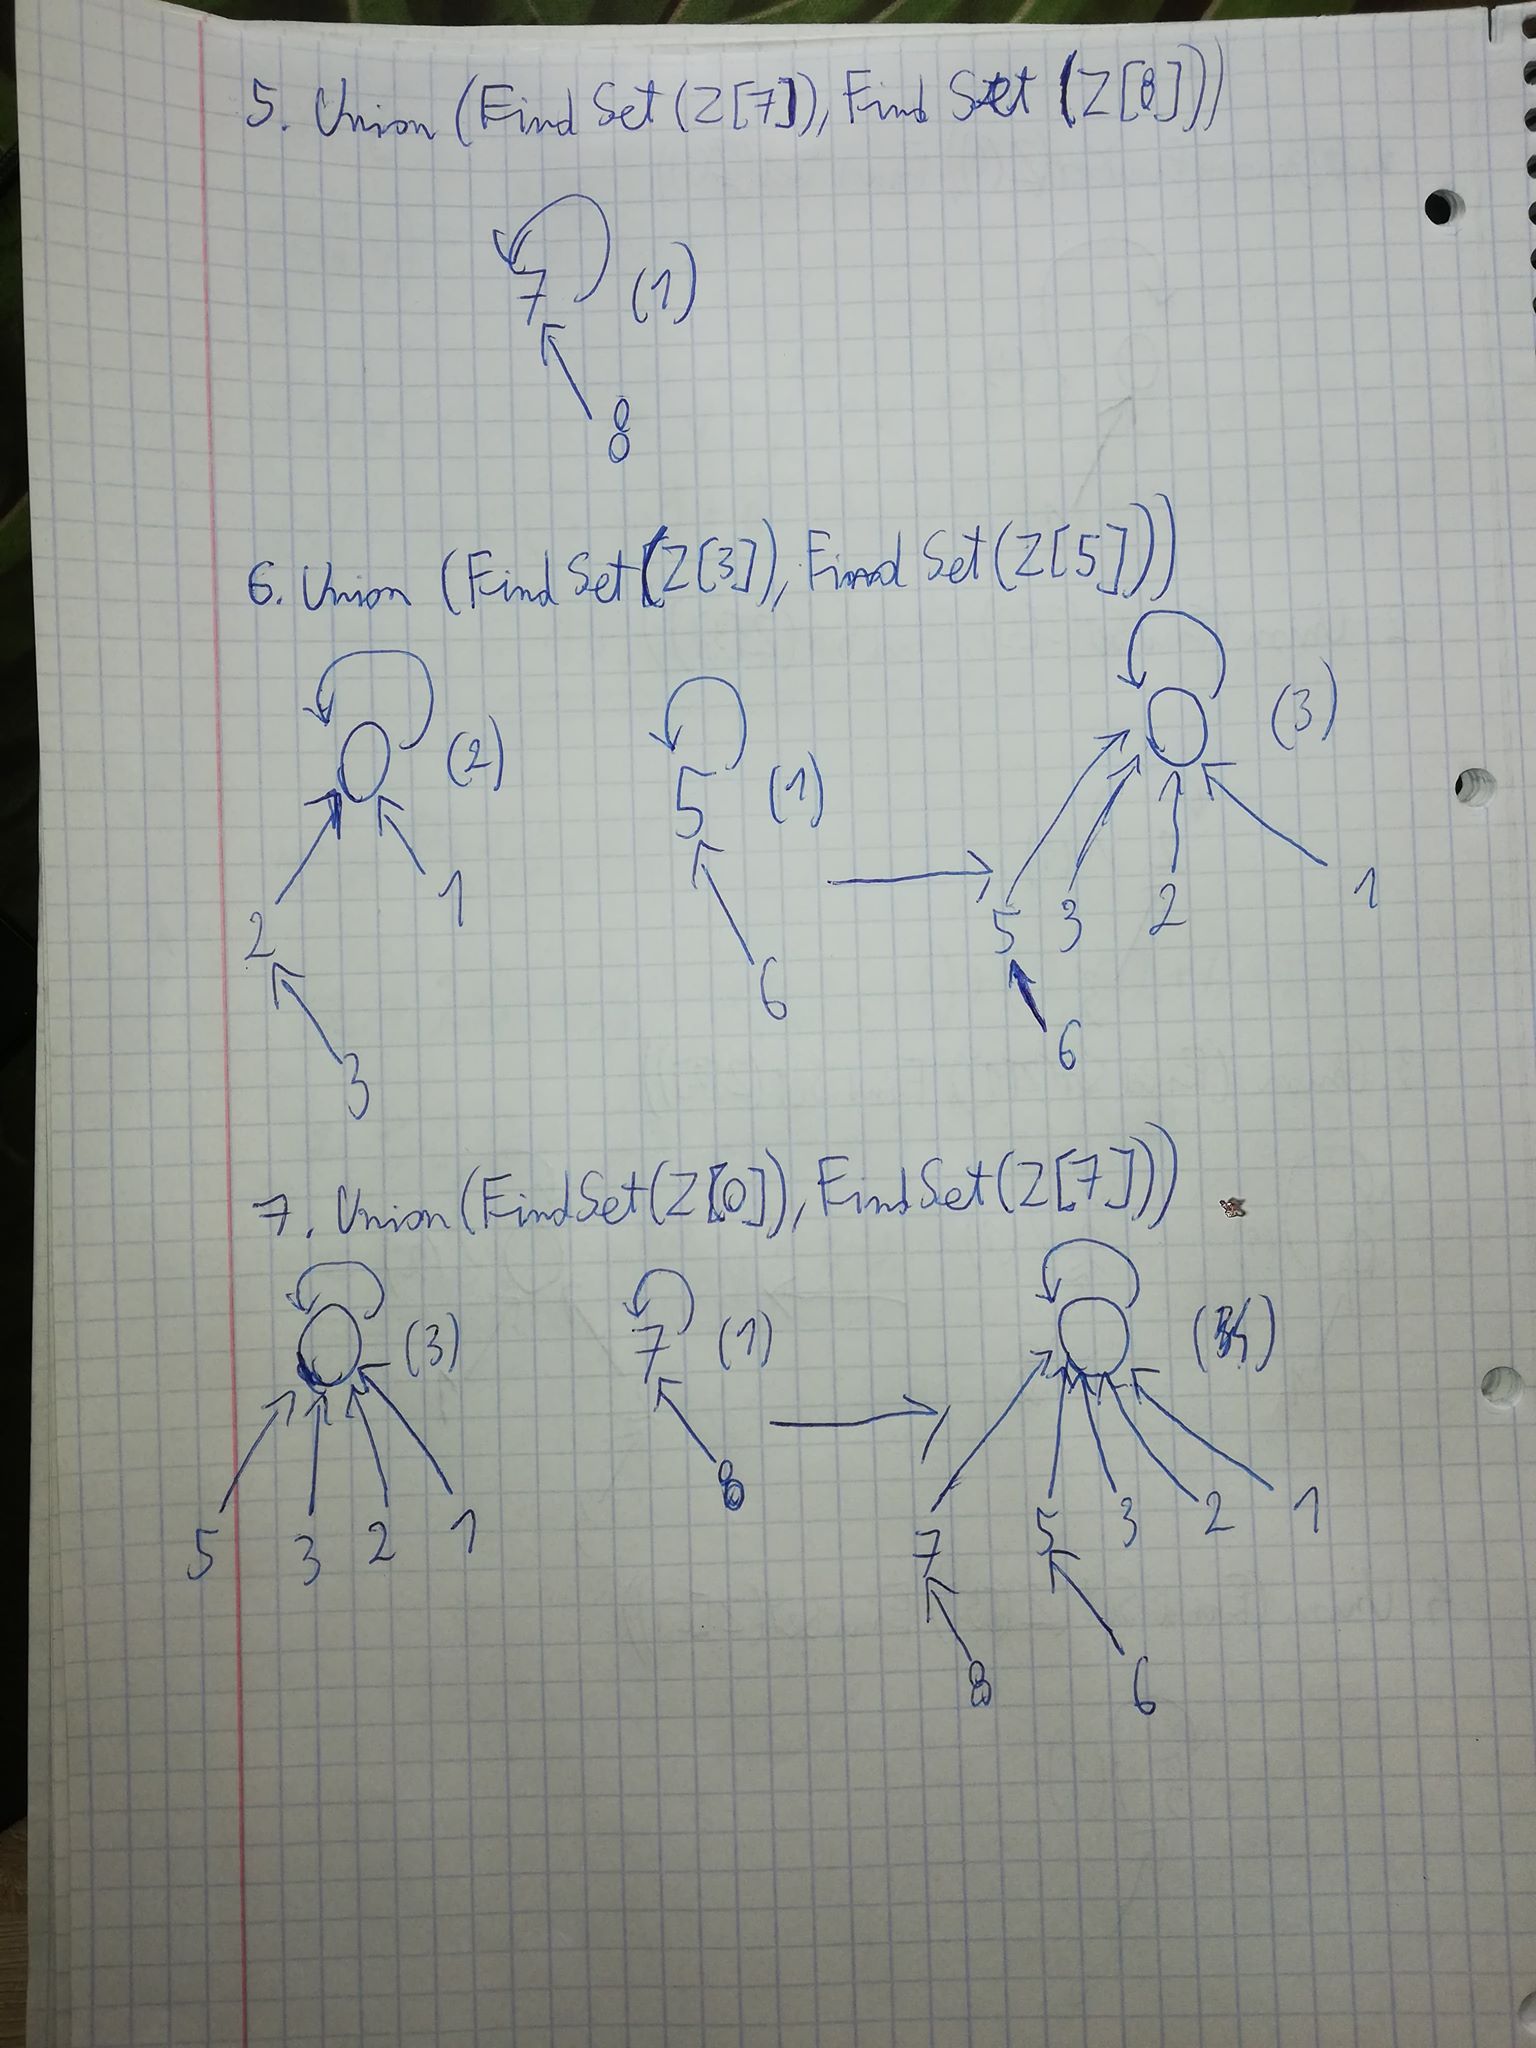 5. Union (Find Set (Z[7]), Find Set (Z[8]))
7 (1)
8
6. Union (Find Set(Z[3]), Find Set (Z[5]))
0 (2) 5 (1) 0 (3)
2 1 5 3 2 1
6 6
3
7. Union (FindSet(Z[0]), FindSet(Z[7]))
0 (3) 7 (1) 0
5 3 2 1 8 7 5 3 2 1
8 6